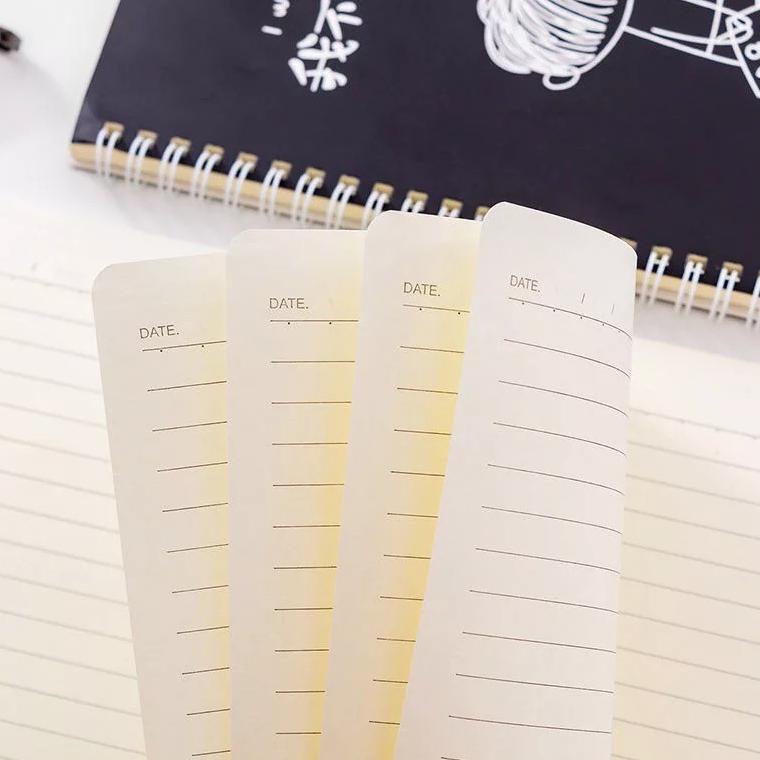 I w
我不
DATE.
DATE.
DATE.
DATE. / /